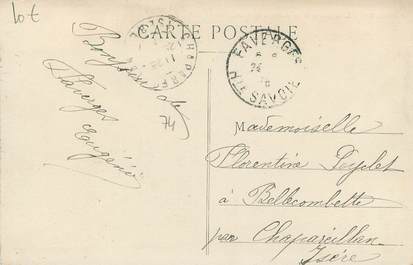 10 €
CARTE POSTALE
FAVERGES
Hte SAVOIE
Bonjour de
Faverges
Eugénie
74
Mademoiselle
Florentine
à Bellecombette
par Chapareillan
Isère